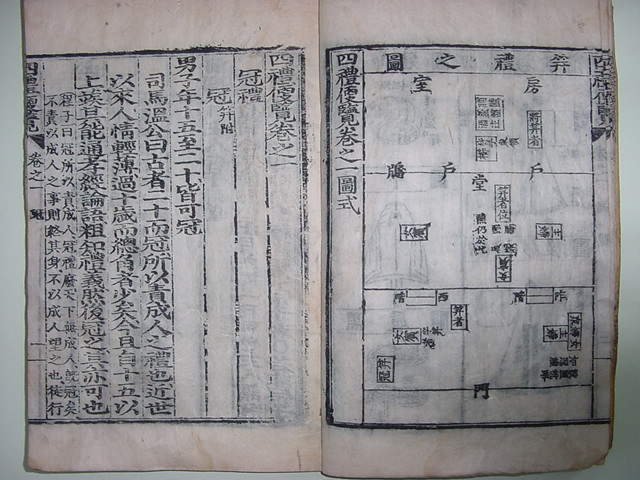 四禮便覽
笄禮之圖
房
室
戶
戶
牖
堂
笄者位
笄者
門
四禮便覽卷之一圖式
四禮便覽卷之一
冠禮
冠 笄附
男子年十五至二十皆可冠
司馬溫公曰古者二十而冠所以責成人之禮也近世
以來人情輕薄過十歲而總角者少矣
上俟其能通孝經論語粗知禮義然後冠之其亦可也
程子曰冠所以責成人冠禮廢天下無成人既冠矣
不責以成人之事則終其身不以成人望之也徒行
四禮便覽 卷之一 冠